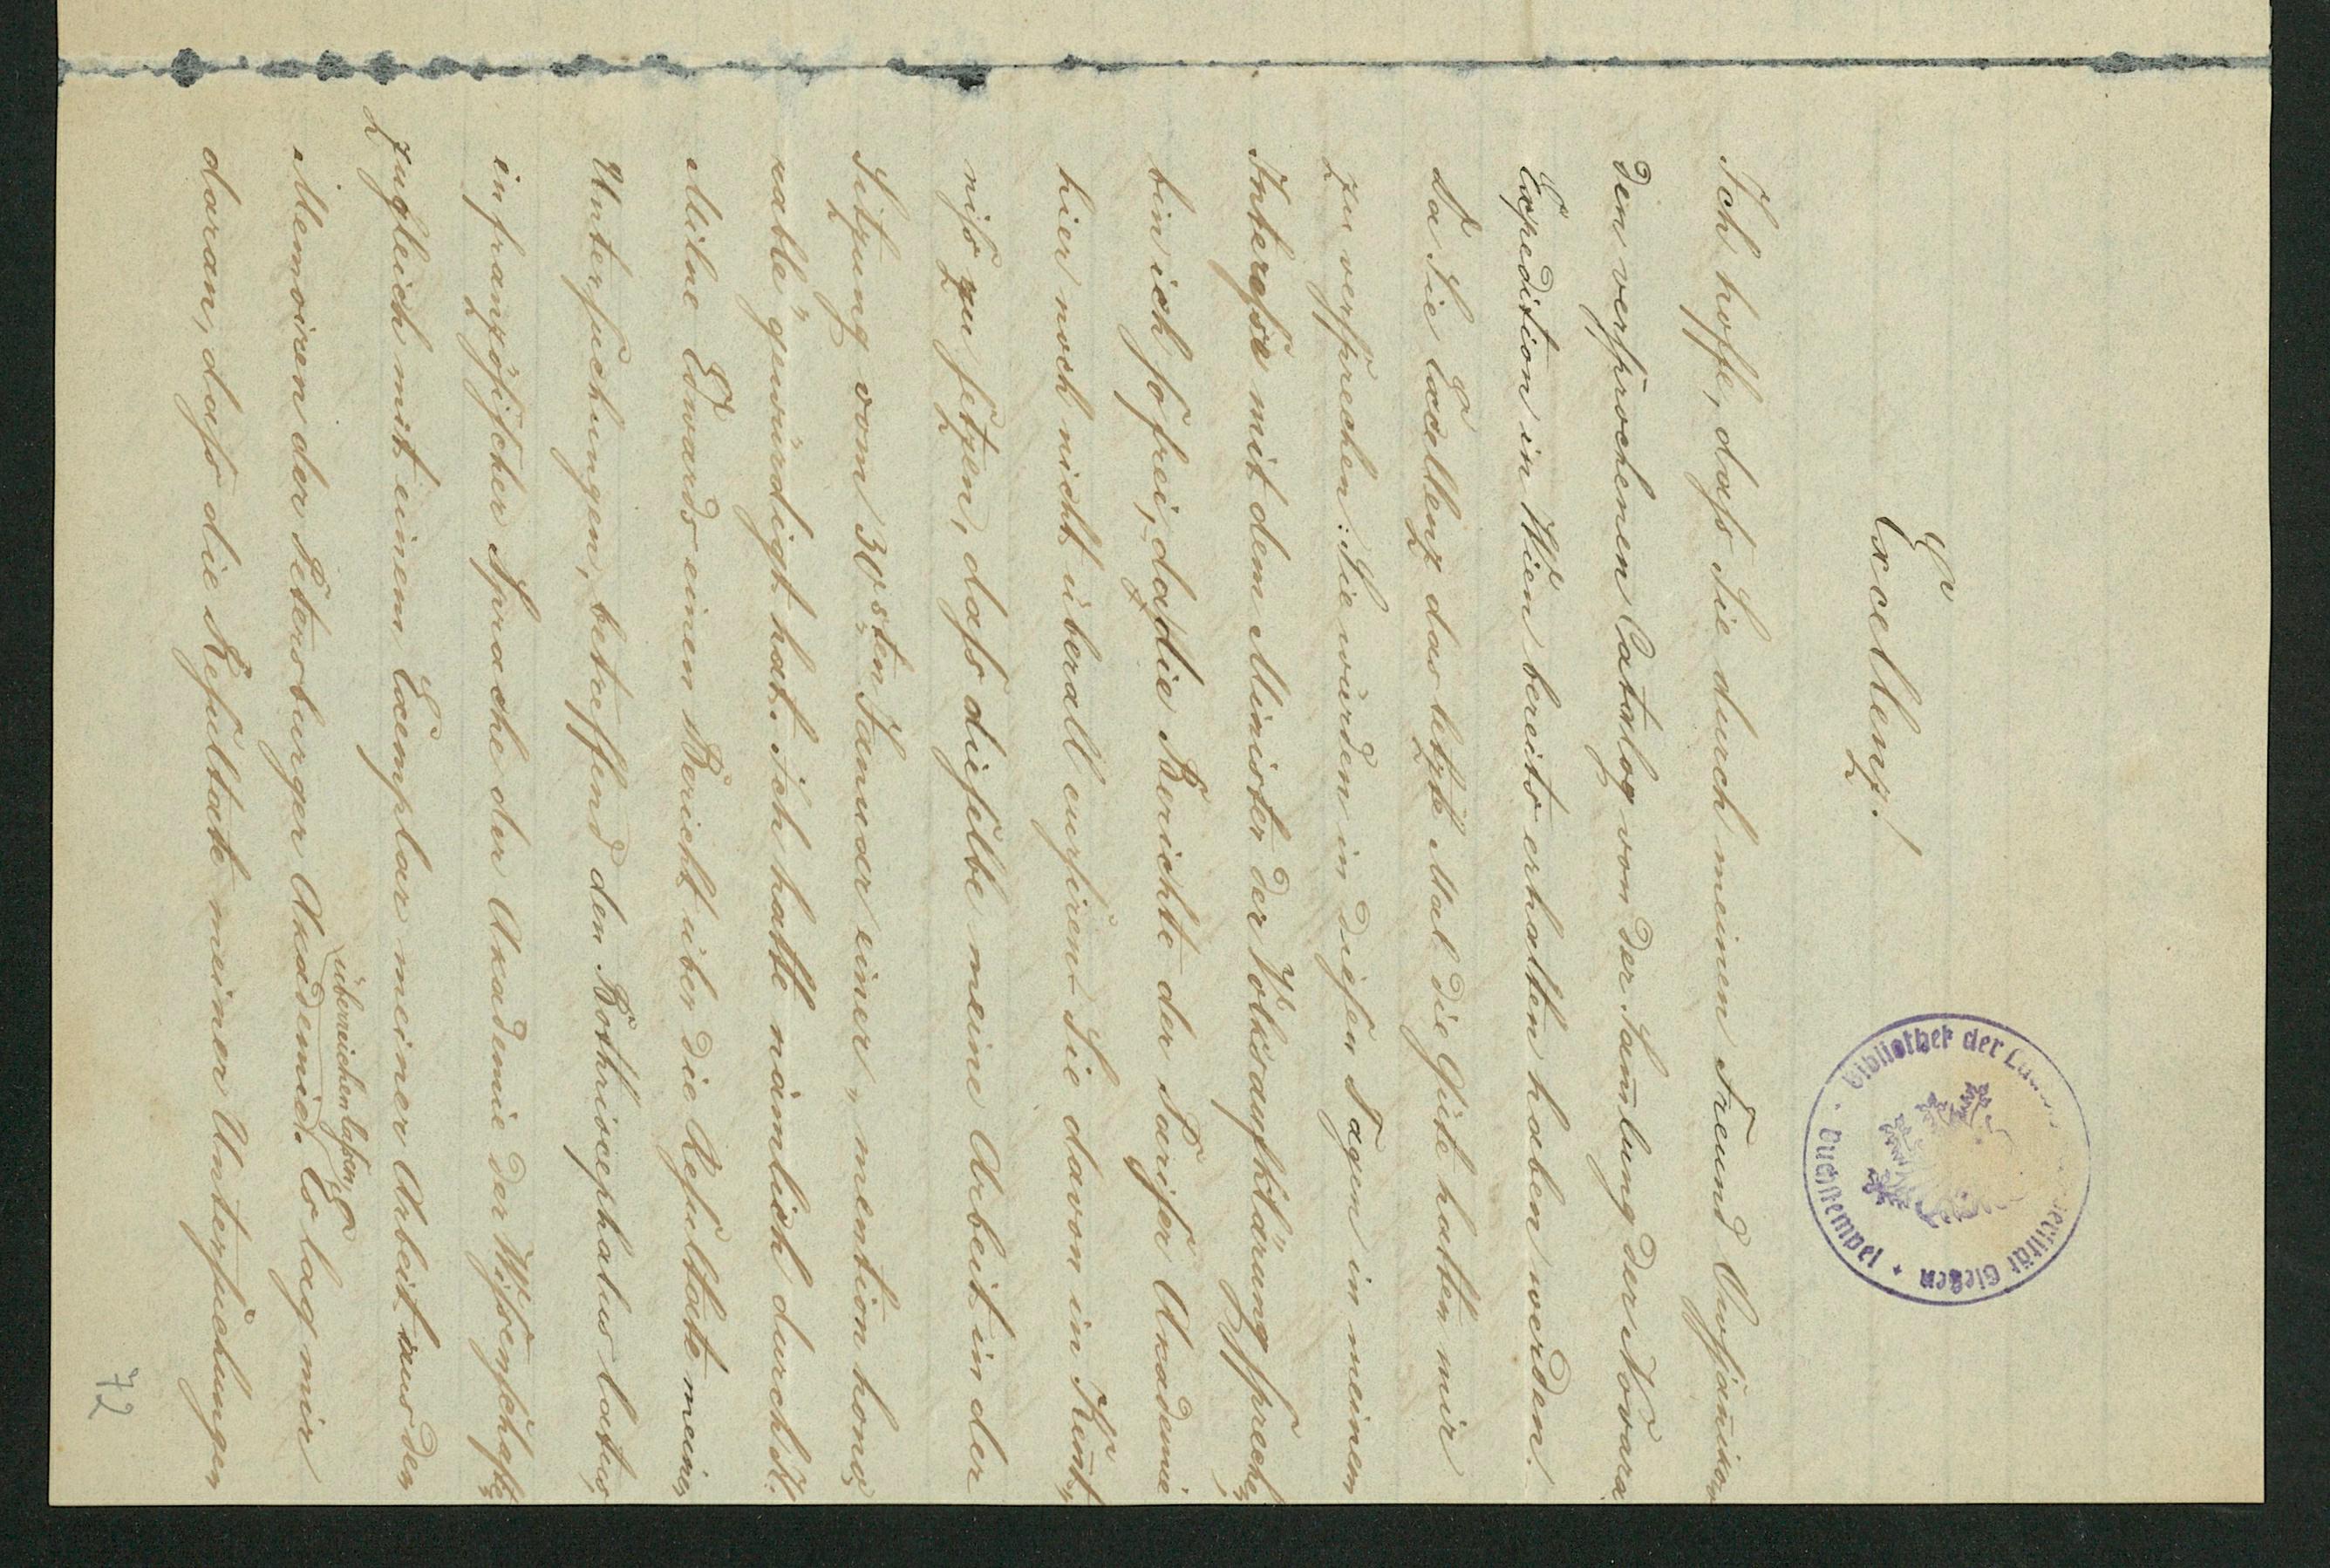 Excellenz!
Bibliothek der Ludwigs-Universität Gießen
Buchstempel
Ich hoffe, dass Sie durch meinen Freund Owsjan̄ikow
den versprochenen Catalog von der Sam̄lung der Novara
Expedition in Wien bereits erhalten haben werden.
Da Sie Excellenz das letzte Mal die Güte hatten mir
zu versprechen: Sie würden in diesen Tagen in meinem
Interesse mit dem Minister der Volksaufklärung sprechen,
bin ich so frei, da die Berichte der Pariser Akademie
hier noch nicht überall cursiren Sie davon in Ken̄t-
niss zu setzen, dass dieselbe meine Arbeit in der
Sitzung vom 30sten Januar einer „mention hono-
rable“ gewürdigt hat. Ich hatte nämlich durch H.
Milne Edwards einen Bericht über die Resultate meiner
Untersuchungen, betreffend den Bothriocephalus latus,
in französischer Sprache der Akademie der Wissenschaften
zugleich mit einem Exemplar meiner Arbeit aus den
Memoiren der Petersburger Akademie überreichen lassen. Es lag mir
daran, dass die Resultate meiner Untersuchungen
72